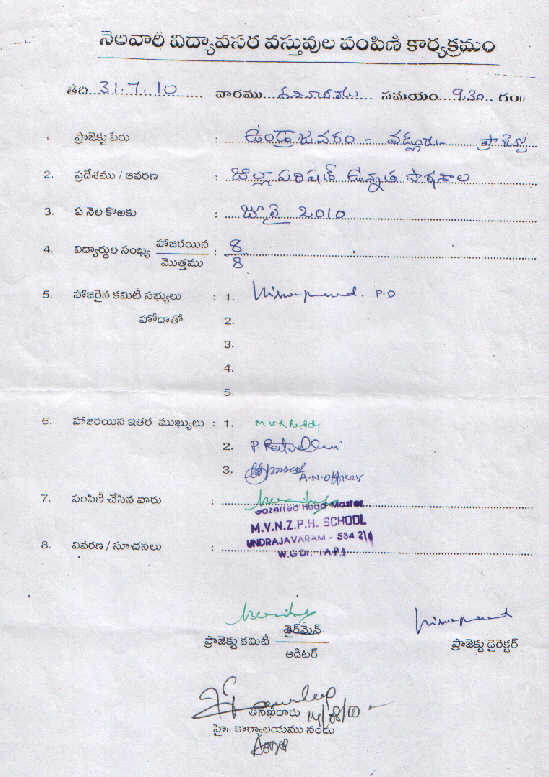 నెలవారీ విద్యావసర వస్తువుల పంపిణి కార్యక్రమం
తేది 31.7.10 వారము శనివారము సమయం 9.30 గం॥
1. ప్రాజెక్టు పేరు : ఉండ్రాజవరం - వడ్లూరు
2. ప్రదేశము / ఆవరణ : జిల్లా పరిషత్ ఉన్నత పాఠశాల
3. ఏ నెల కొరకు : జూలై 2010
4. విద్యార్థుల సంఖ్య హాజరయిన : 8
మొత్తము 8
5. హాజరైన కమిటీ సభ్యులు : 1. P.O
హోదాతో 2.
3.
4.
5.
6. హాజరయిన ఇతర ముఖ్యులు : 1.
2.
3. A.N. Officer
7. పంపిణీ చేసిన వారు :
Gazetted Head Master
M.V.N.Z.P.H. SCHOOL
8. వివరణ / సూచనలు : UNDRAJAVARAM - 534 216
W.G.Dt. (A.P.)
ప్రాజెక్టు కమిటీ ఛైర్మన్ ప్రాజెక్టు డైరెక్టర్
ఆడిటర్
14/8/10